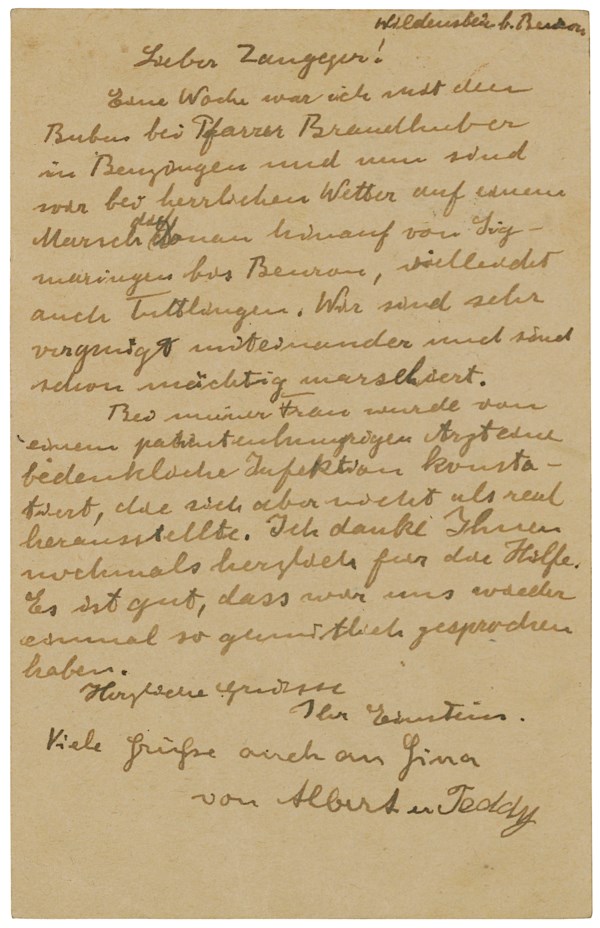 Wildenstein b. Beuron
Lieber Zangger!
Eine Woche war ich mit den
Buben bei Pfarrer Brandhuber
in Benzingen und nun sind
wir bei herrlichem Wetter auf einem
Marsch die Donau hinauf von Sig-
maringen bis Beuron, vielleicht
auch Tuttlingen. Wir sind sehr
vergnügt miteinander und sind
schon mächtig marschiert.
Bei meiner Frau wurde von
einem patientenhungrigen Arzt eine
bedenkliche Infektion konsta-
tiert, die sich aber nicht als real
herausstellte. Ich danke Ihnen
nochmals herzlich für die Hilfe.
Es ist gut, dass wir uns wieder
einmal so gemütlich gesprochen
haben.
Herzliche Grüsse
Ihr Einstein.
Viele Grüße auch an Gina
von Albert u Teddy